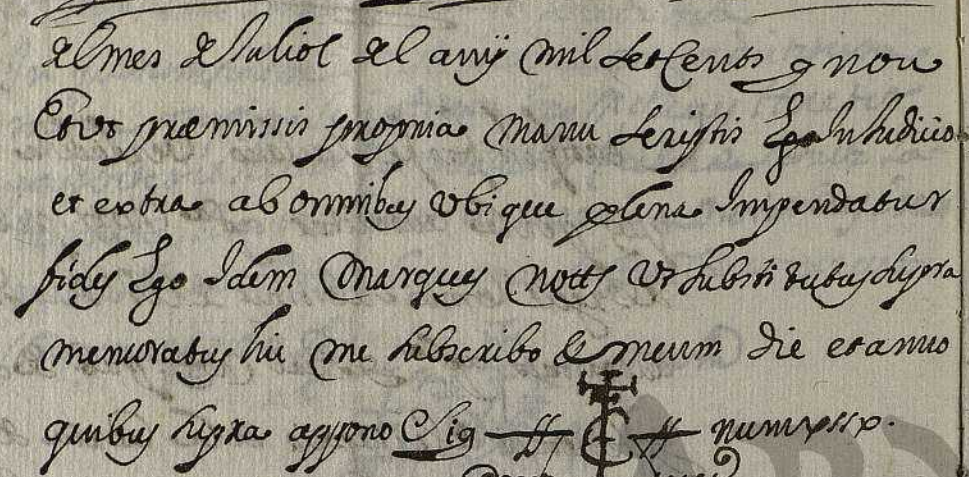 del mes de Juliol del any mil setcents y nou
Et ut præmissis propria manu scriptis Ego In Judiцio
et extra ab omnibus ubique plena Impendatur
fides Ego Idem Marques nott⁠s ut substitutus supra
memoratus hic me subscribo & meum die et anno
quibus supra appono Sig num